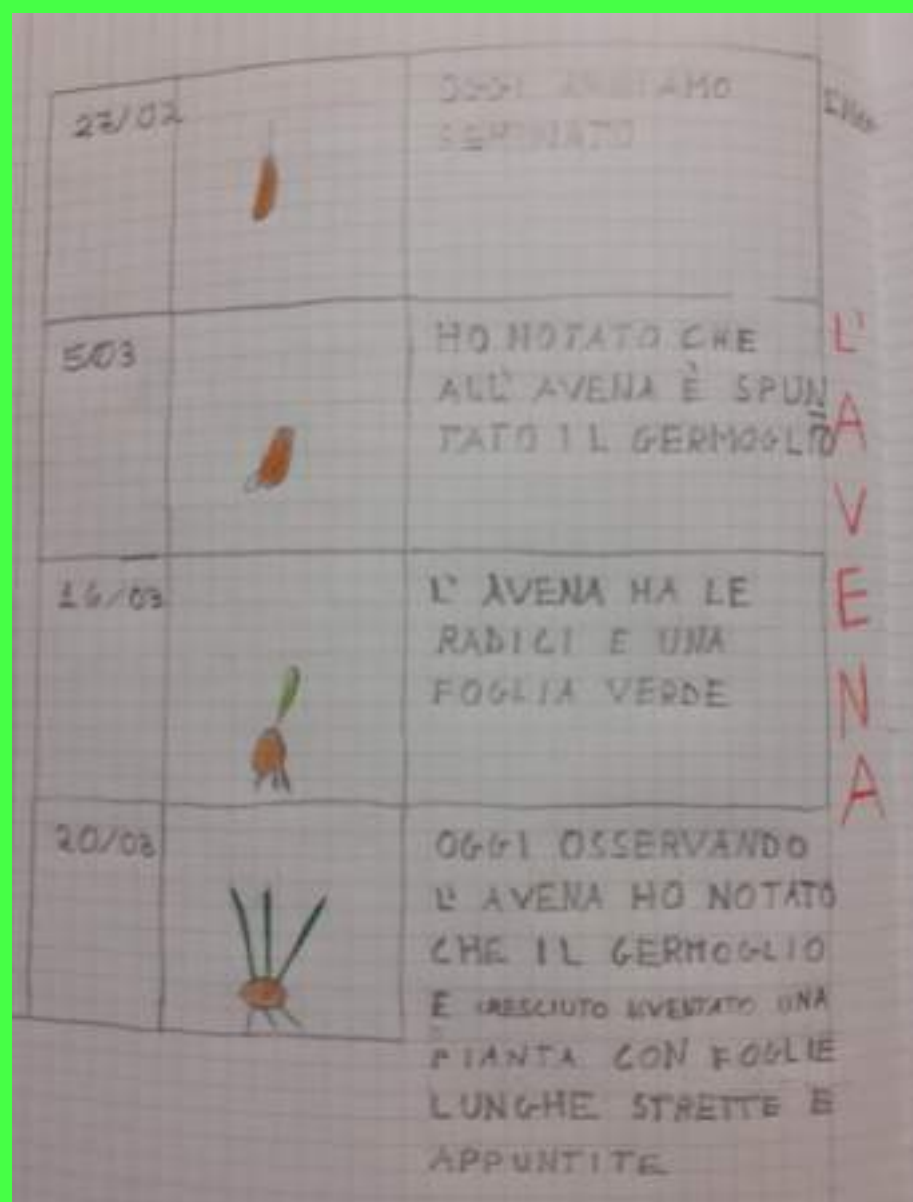 OGGI ABBIAMO
SEMINATO
5/03
HO NOTATO CHE
ALL' AVENA È SPUN
TATO IL GERMOGLIO
L' AVENA HA LE
RADICI E UNA
FOGLIA VERDE
20/03
OGGI OSSERVANDO
L' AVENA HO NOTATO
CHE IL GERMOGLIO
E CRESCIUTO DIVENTATO UNA
PIANTA CON FOGLIE
LUNGHE STRETTE E
APPUNTITE
L'AVENA